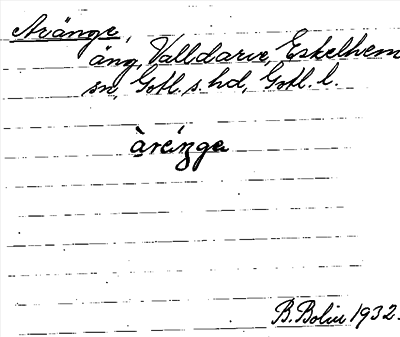 Avänge,
äng, Valldarve, Eskelhem
sn, Gotl. s. hd, Gotl. l.
àvèi̯ŋgə
B. Bolin 1932.